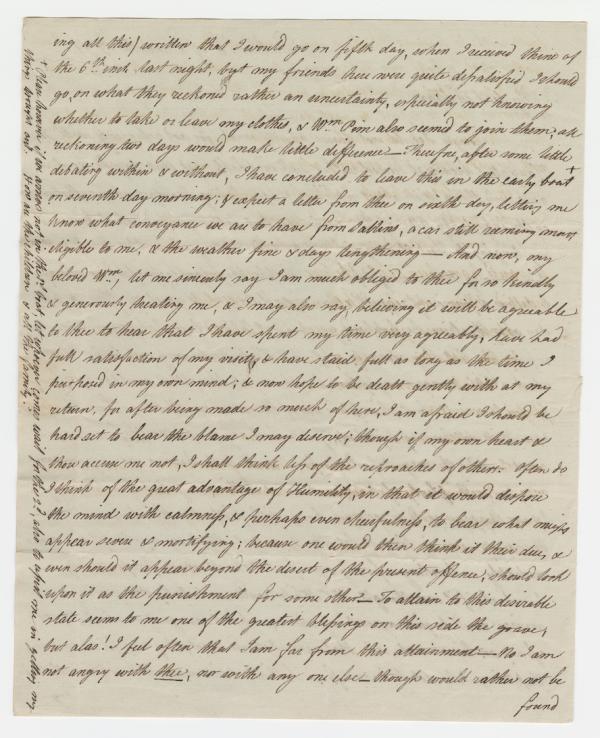 ing all this) written that I would go on fifth day, when I received thine of
the 6th inst. last night, but my friends here were quite dissatisfied I should
go, on what they reckoned rather an uncertainty, especially not knowing
whether to take or leave my clothes, & Wm. Pim also seemed to join them, all
reckoning two days would make little difference — Therefore, after some little
debating within & without, I have concluded to leave this in the early boat +
on seventh day morning; & expect a letter from thee on sixth day, letting me
know what conveyance we are to have from Sallins, a car still seeming most
eligible to me, & the weather fine & days lengthening — And now, my
beloved Wm, let me sincerely say I am much obliged to thee for so kindly
& generously treating me, & I may also say, believing it will be agreeable
to thee to hear that I have spent my time very agreeably, have had
full satisfaction of my visit, & have staid full as long as the time I
purposed in my own mind; & now hope to be dealt gently with at my
return, for after being made so much of here, I am afraid I should be
hard set to bear the blame I may deserve; though if my own heart &
thou accuse me not, I shall think less of the reproaches of others. Often do
I think of the great advantage of Humility, in that it would dispose
the mind with calmness, & perhaps even chearfulness, to bear what might
appear severe & mortifying; because one would then think it their due, &
even should it appear beyond the desert of the present offence, should look
upon it as the punishment for some other — To attain to this desirable
state seems to me one of the greatest blessings on this side the grave,
but alas! I feel often that I am far from this attainment — No I am
not angry with thee, nor with any one else — though would rather not be
found
+ Plan however if I'm not in the 1st boat, let
come wait for the 2d, also to assist me in getting my